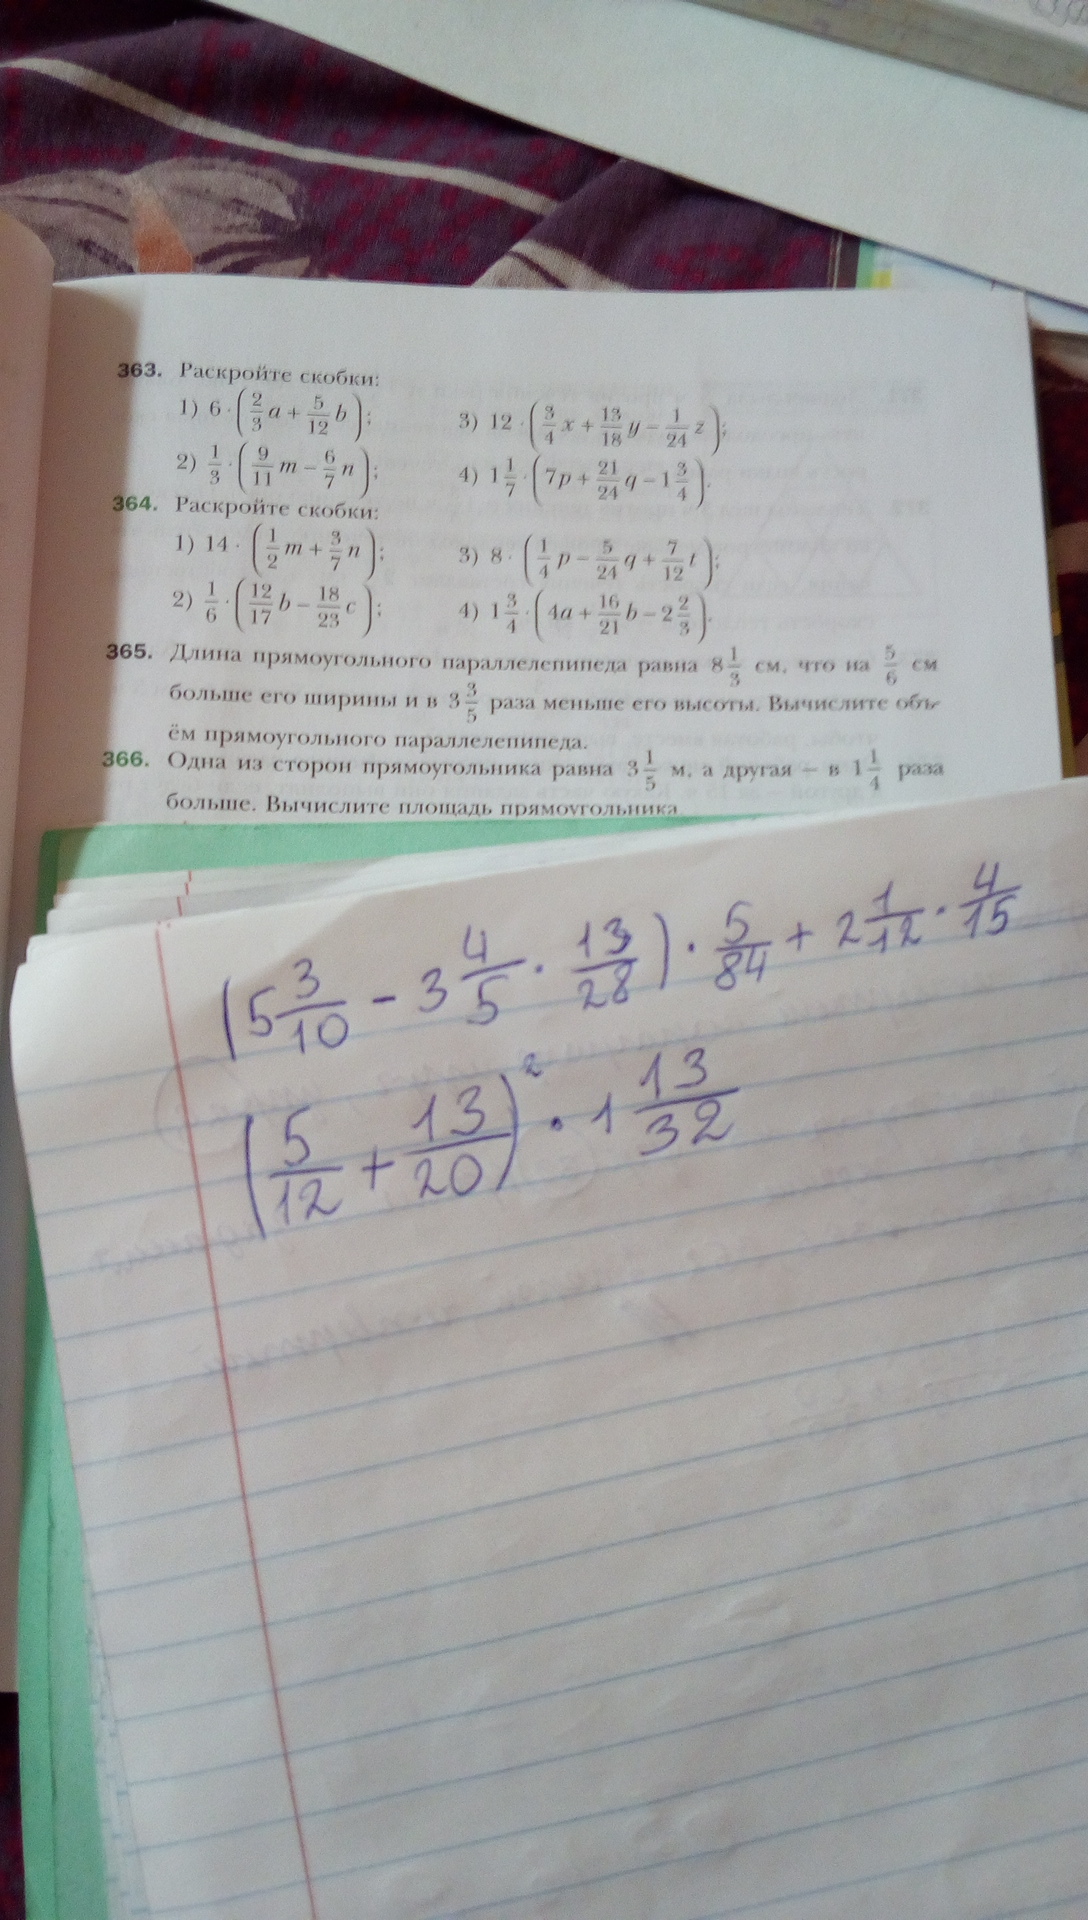 363. Раскройте скобки:
1) 6 · (2/3 a + 5/12 b);
3) 12 · (3/4 x + 13/18 y − 1/24 z);
2) 1/3 · (9/11 m − 6/7 n);
4) 1 1/7 · (7p + 21/24 q − 1 3/4).
364. Раскройте скобки:
1) 14 · (1/2 m + 3/7 n);
3) 8 · (1/4 p − 5/24 q + 7/12 t);
2) 1/6 · (12/17 b − 18/23 c);
4) 1 3/4 · (4a + 16/21 b − 2 2/3).
365. Длина прямоугольного параллелепипеда равна 8 1/3 см, что на 5/6 см
больше его ширины и в 3 3/5 раза меньше его высоты. Вычислите объ-
ём прямоугольного параллелепипеда.
366. Одна из сторон прямоугольника равна 3 1/5 м, а другая – в 1 1/4 раза
больше. Вычислите площадь прямоугольника
(5 3/10 − 3 4/5 · 13/28) · 5/84 + 2 1/12 · 4/15
(5/12 + 13/20)² · 1 13/32